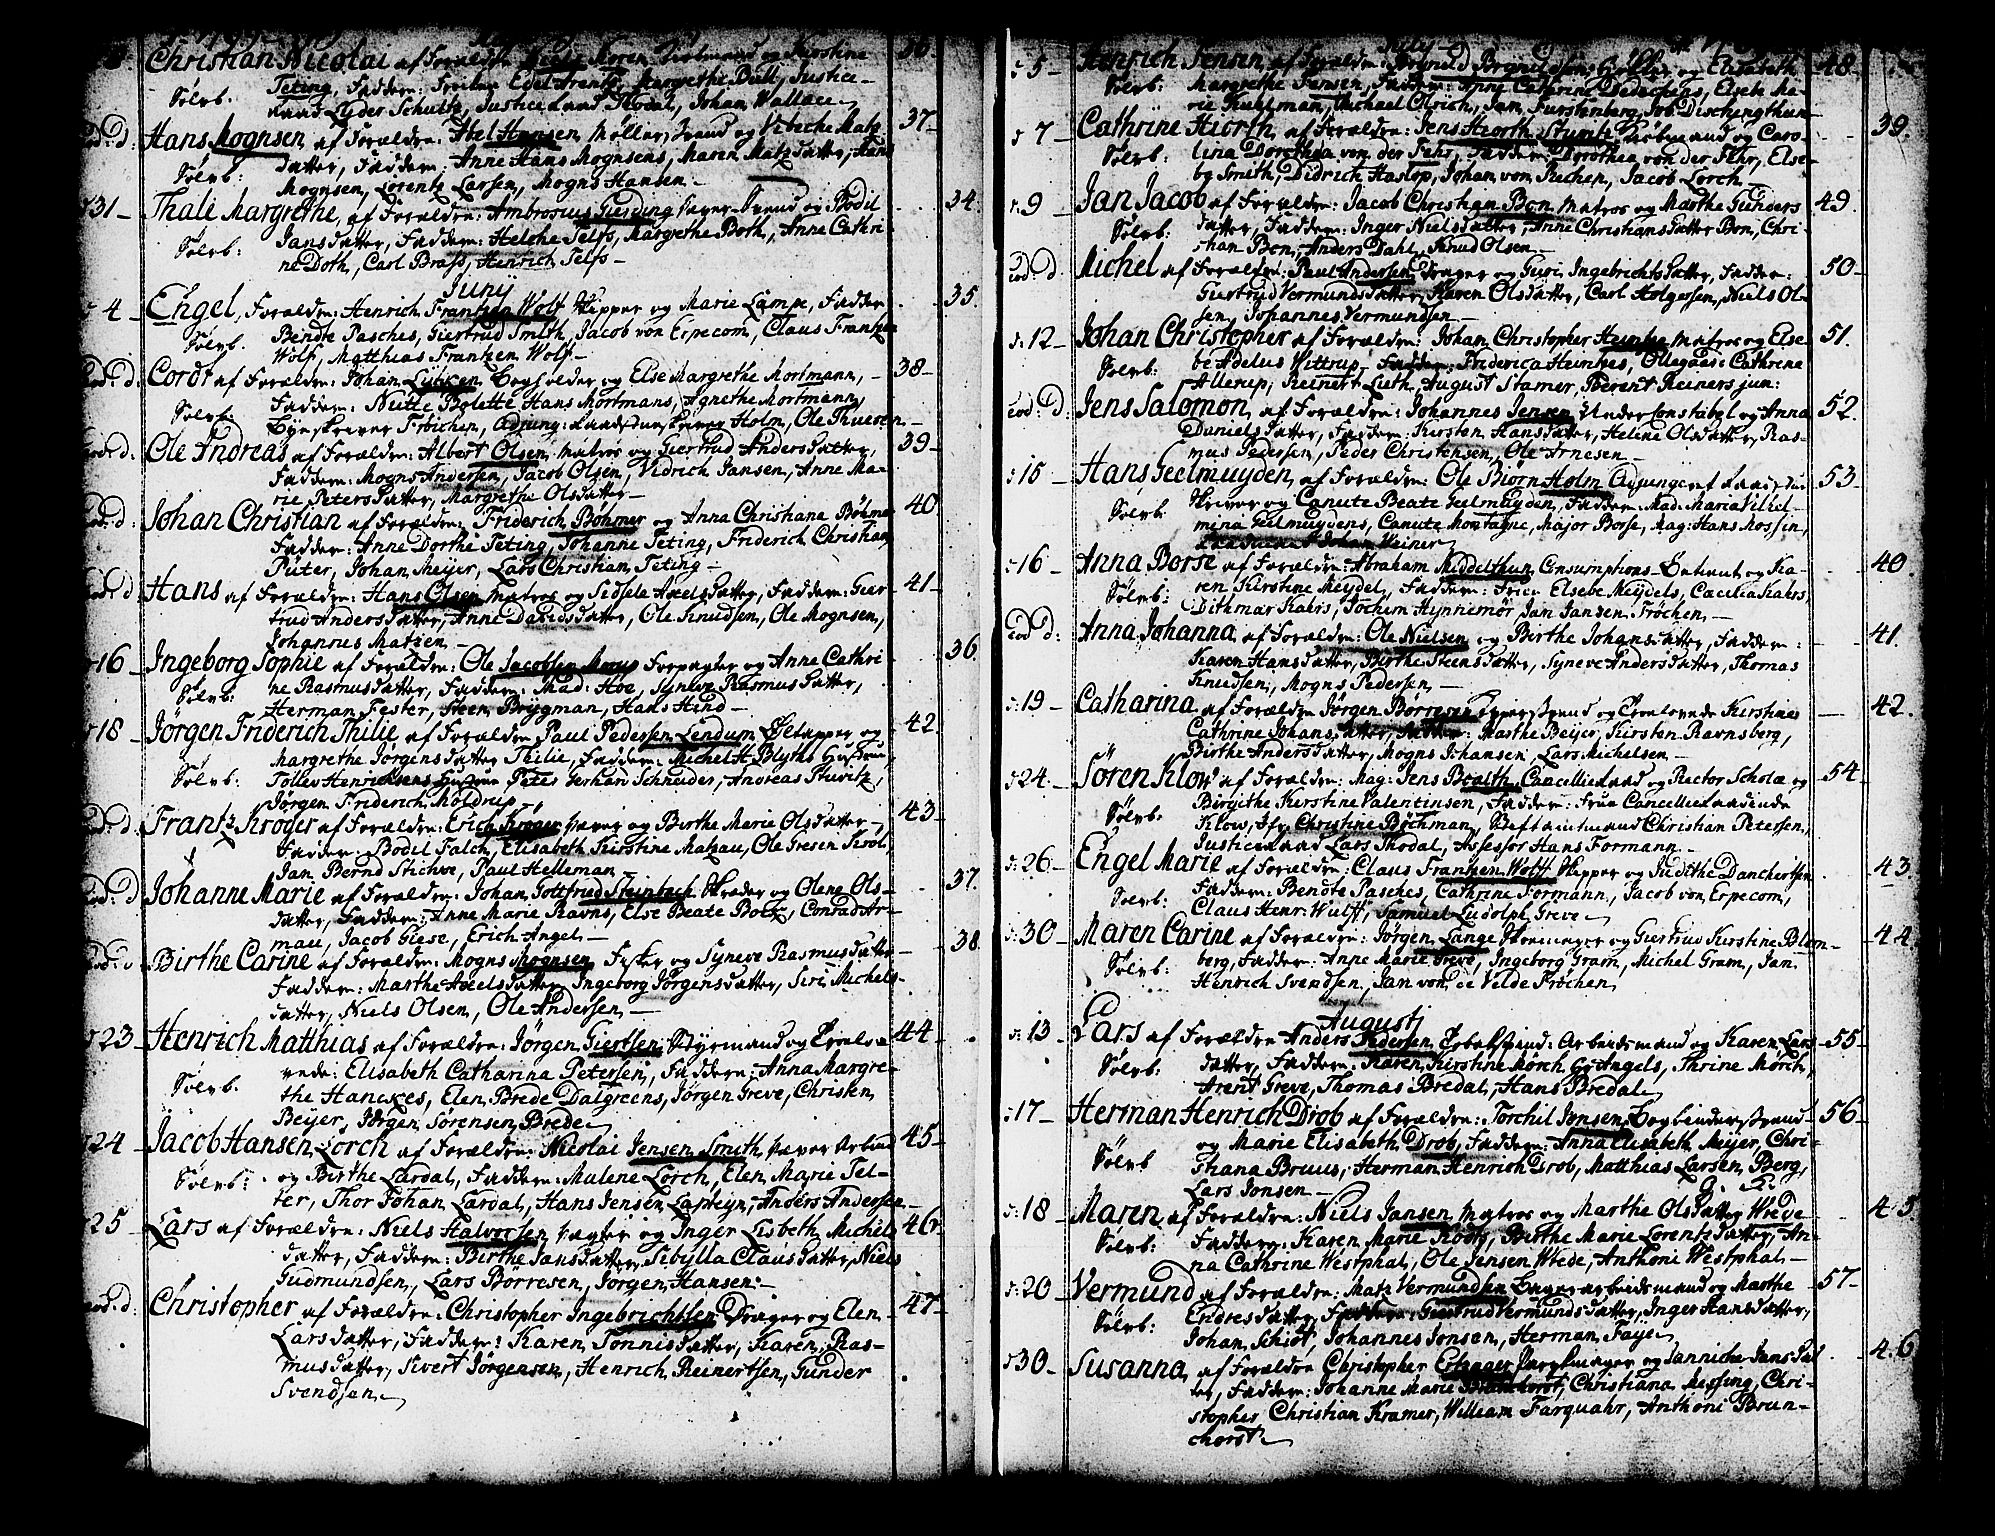 Christian Nicolai af Forældre Niels Koren og Kirstine 36
Teting, Faddere: Frøiken Edel Arentz, Margrethe Bull, Justice-
Sølvb. raad Lyder Schultz, Justice Raad Flodal, Johan Wallace
eod. d: Hans Mognsen af Forældre: Abel Hansen Møller Svend og Vibiche Matz 37
datter, Faddere: Anne Hans Mognsens, Maren Matzdatter, Hans
Sølvb: Mognsen, Lorentz Larsen, Mogns Hansen
31 Thale Margrethe, af Forældre: Ambrosius Giesding Svend og Bodil 34.
Sølvb: Jansdatter, Faddere: Helche Telfs, Margrethe Both, Anne Cathri-
ne Doth, Carl Brass, Henrich Telfs
Junij
4 Engel, Forældre: Henrich Frantzen Wolf Skipper og Marie Lampe, Faddere 35.
Sølvb. Bendte Pasches, Giertrud Smith, Jacob von Erpecom, Claus Frantzen
Wolf, Matthias Frantzen Wolf
eod. d. Cordt af Forældre: Johan Lübken Bogholder og Else Margrethe Mortmann, 38
Sølvb: Faddere: Nille Bolette Hans Mortmans, Agnethe Mortmann,
Byeskriver Frøichen, Adjung: Laugdingskriver Holm, Ole Thuesen
eod. d. Ole Andreas af Forældre: Albert Olsen matros og Giertrud Andersdatter, 39
Faddere: Mogns Andersen, Jacob Olsen, Vidrich Jansen, Anne Ma-
rie Petersdatter, Margrethe Olsdatter
eod. d: Johan Christian af Forældre: Friderich Bøhmer og Anna Christiane Bøhmer 40
Faddere: Anne Dorthe Teting, Johanne Teting, Friderich Christian
Püter, Johan Meyer, Lars Christian Teting
eod. d Hans af Forældre: Hans Olsen matros og Sidsele Axelsdatter, Faddere: Gier- 41
trud Andersdatter, Anne Davidsdatter, Ole Knudsen, Ole Mognsen,
Johannes Matzen
16 Ingeborg Sophie af Forældre: Ole Jacobsen Morup Forpagter og Anna Cathri- 36.
Sølvb: ne Rasmusdatter, Faddere: Mad: Hoe, Syneve Rasmusdatter,
Herman Fester, Steen Brygman, Hans Hind
18 Jørgen Friderich Thilie af Forældre Paul Pedersen Lendum Øltapper og 42
Margrethe Jørgensdatter Thilie, Faddere: Michel H Blyths Hustrue,
Sølvb: Tollev Henrichsens Hustrue Peter Gerhar Schneider, Andreas Sturitz,
Jørgen Friderich Moldrup
eod. d. Frantz Krøger af Forældre: Erich Krøger og Birthe Marie Olsdatter, 43
Faddere: Bodil Falch, Elisabeth Kirstine Matzau, Ole Gresen Krol,
Jan Bernd Stichve, Paul Helleman
eod. d Johanne Marie af Forældre: Johan Gottfried Steinbach Skræder og Olene Ols- 37.
datter, Faddere: Anne Marie Ravns, Else Beate Bock, Conrad Ar-
mau, Jacob Giese, Erich Angel
eod. d Birthe Carine af Forældre: Mogns Mognsen Fisker og Syneve Rasmusdatter 38
Faddere: Marthe Axelsdatter, Ingeborg Jørgensdatter, Siri Michels-
datter, Niels Olsen, Ole Andersen
23 Henrich Matthias af Forældre: Jørgen Giertsen Styrmand og Trolo- 44
Sølvb. vede: Elisabeth Catharina Petersen, Faddere: Anna Margre-
the Hanckes, Elen Brede Dalgreens, Jørgen Greve, Christen
Beyer, Jørgen Sørensen Brede
24 Jacob Hansen Lorch af Forældre: Nicolai Jensen Smith 45
Sølvb: og Birthe Lardal, Faddere: Malene Lorch, Elen Marie Tel-
ter, Thor Johan Lardal, Hans Jensen Lasteyn, Anders Andersen
25 Lars af Forældre: Niels Halvorsen og Inger Lisbeth Michels 46
datter, Faddere: Birthe Jansdatter, Sibylla Clausdatter, Niels
Gudmundsen, Lars Børresen, Jørgen Hansen:
eod. d: Christopher af Forældre: Christopher Ingebrichtsen Drager og Elen 47
Larsdatter, Faddere: Karen Tønnisdatter, Karen Ras-
musdatter, Sivert Jørgensen, Henrich Reinertsen, Gunder
Svendsen
July
5 Henrich Jensen af Forældre: og Elisabeth 48
Sølvb: Margrethe Jensen, Faddere: Anne Cathrine Dedechens, Elsebe Ma-
rie Kuhlman, Michael Olrich, Jan Furstenberg, Job Dischengthun
7 Cathrine Hiorth af Forældre: Jens Hiorth Stuntz Kiøbmand og Caro- 39.
Sølvb: lina Dorothea von der Fehr, Faddere: Dorothea von der Fehr, Else-
be Smith, Didrich Haslop, Johan von Rechen, Jacob Lorch
9 Jan Jacob af Forældre: Jacob Christian Bon matros og Marthe Gunders 49.
Sølvb: datter, Faddere: Inger Nielsdatter, Anne Christiansdatter Bon, Chri-
stian Bon, Anders Dahl, Knud Olsen
eod. d. Michel af Forældre: Paul Andersen Drager og Guri Ingebrichtsdatter, Faddere: 50
Giertrud Vermundsdatter, Karen Olsdatter, Carl Holgersen, Niels Ol-
sen, Johannes Vermundsen
12 Johan Christopher af Forældre: Johan Christopher Heintze matros og Else- 51.
Sølvb: be Adelus Wittrup, Faddere: Friderica Heintzes, Ollegaes Cathrine
Allerup, Reinert Lieth, August Stamer, Berent Reiners jun:
eod: d. Jens Salomon af Forældre: Johannes Jensen Underconstabel og Anna 52
Danielsdatter, Faddere: Kirsten Hansdatter, Helene Olsdatter, Ras-
mus Pedersen, Peder Christensen, Ole Arnesen
15 Hans Geelmuyden, af Forældre: Ole Biørn Holm Adjungeret Laugding 53
Sølvb. Skriver og Canute Beate Geelmuyden, Faddere: Mad. Maria Vilhel-
mina Geelmuydens, Canute Montagne, Major Borse, Mag: Hans Mossin,
Johan Weiner
16 Anna Borse af Forældre: Abraham Middelthun Consumptions-Betient og Ka- 40.
Sølvb: ren Kirstine Meydel, Faddere: Frue Elsebe Meydels, Cæcilia Kahrs,
Dithmar Kahrs, Jochum Hynnemør Jan Jansen Frøchen
eod d: Anna Johanna af Forældre: Ole Nielsen og Birthe Johansdatter, Faddere: 41.
Karen Hansdatter, Birthe Steensdatter, Syneve Andersdatter, Thomas
Knudsen, Mogns Pedersen
19 Catharina af Forældre Jørgen Børresen og Trolovede Kirstine 42.
Cathrine Johansdatter, Faddere: Marthe Beyer, Kirsten Ravnsberg,
Birthe Andersdatter, Mogns Johansen Lars Michelsen
24. Søren Klow af Forældre: Mag: Jens Boalth, Cancellieraad og Rector Scholæ og 54
Sølvb: Birgithe Kirstine Valentinsen, Faddere: Frue Cancellieraadinde
Klow, Jfr. Christine Bøchman, Stiftamtmand Christian Petersen,
Justiceraad Lars Thodal, Assessor Hans Formann
26 Engel Marie af Forældre: Claus Frantzen Wolff Skipper og Judithe Danchertsen 43
Sølvb: Faddere: Bendte Pasches, Cathrine Formann, Jacob von Erpecom,
Claus Henr: Wulff, Samuel Ludolph Greve
30 Maren Carine af Forældre: Jørgen Lange og Giertrud Kirstine Blom- 44
Sølvb: berg, Faddere: Anne Marie Greve, Ingeborg Gram, Michel Gram, Jan
Henrich Svendsen, Jan von de Velde Frøchen
Augustj
13 Lars af Forældre Anders Pedersen Arbeidsmand og Karen Lars 55
Sølvb: datter, Faddere: Karen Kirstine Mørch G: Angels, Thrine Mørch,
Arent Greve, Thomas Bredal, Hans Bredal
17 Herman Henrich Drob af Forældre: Torchil Jonsen Bogbinder svend 56
Sølvb og Marie Elisabeth Drob, Faddere: Anna Elisabeth Meyer, Chri-
stiana Bruus, Herman Henrich Drob, Matthias Larsen Berg,
Lars Jonsen
18 Maren, af Forældre: Niels Jansen matros og Marthe Olsdatter Wrede 45.
Sølvb: Faddere: Karen Marie Koch, Birthe Marie Lorentzdatter, An-
na Cathrine Westphal, Ole Jensen Wrede, Anthoni Westphal
20 Vermund af Forældre: Matz Vermundsen arbeidsmand og Marthe 57
Sølvb: Endresdatter, Faddere: Giertrud Vermundsdatter, Inger Hansdatter,
Johan Schiøt, Johannes Jonsen, Herman Faye
30 Susanna af Forældre Christopher og Jannicke Jansdat 46
ter, Faddere: Johanne Marie Brunchorst, Christiana Messing, Chri-
stopher Christian Kramer, William Farquahr, Anthoni Brun-
chorst